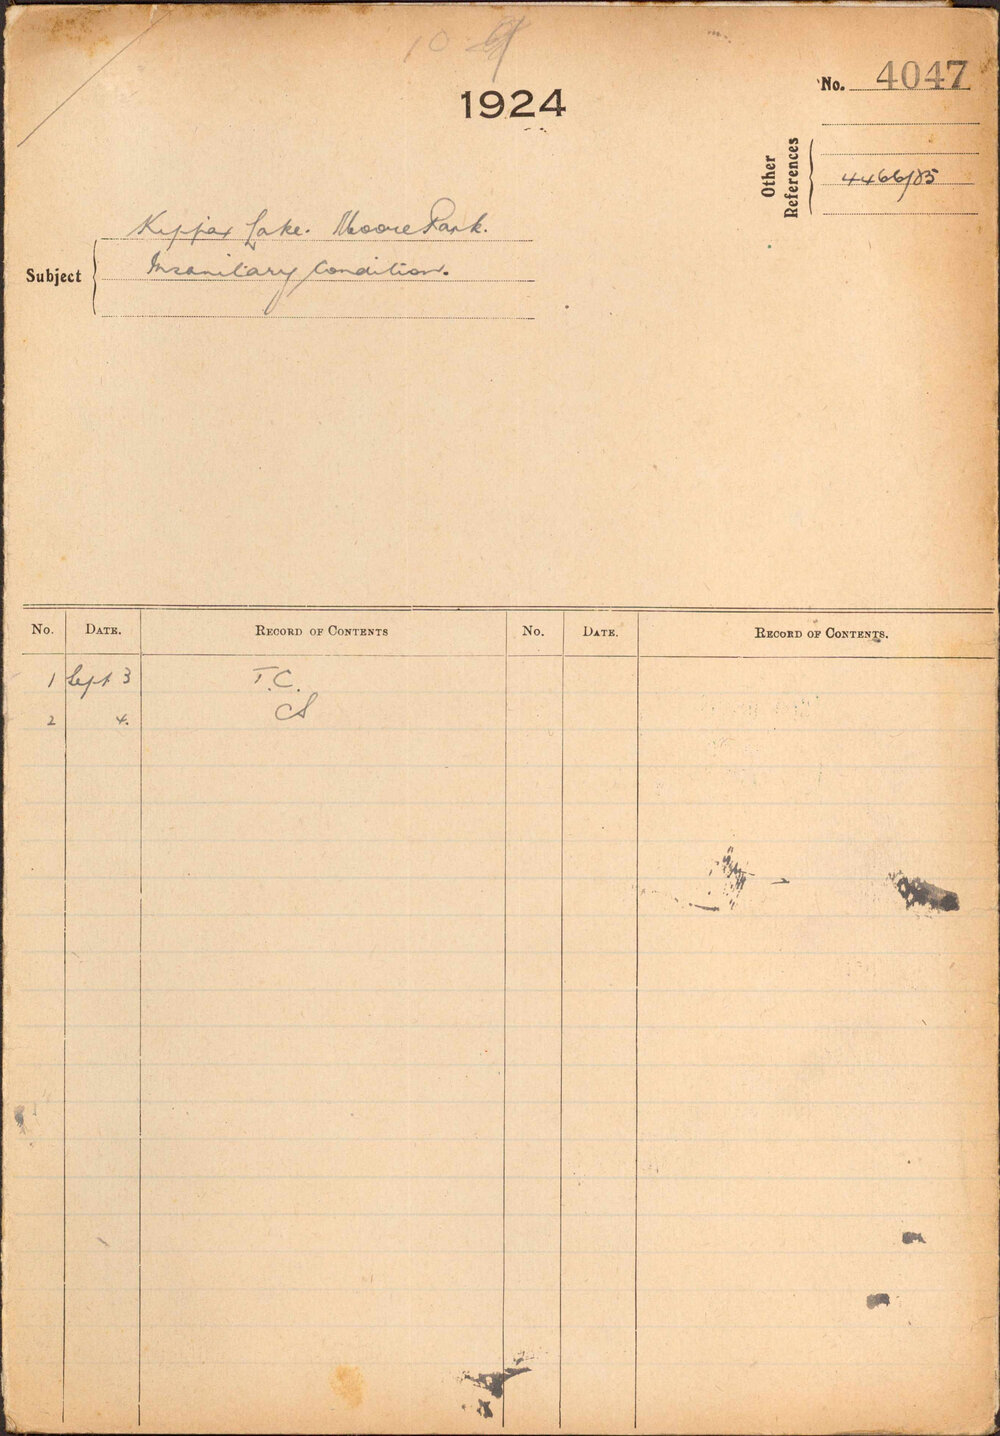 10
1924
No. 4047
Other References
4466/05
Kippax Lake. Moore Park.
Subject
Insanitary Condition.
No. DATE. RECORD OF CONTENTS No. DATE. RECORD OF CONTENTS.
1 Sept 3 T.C.
2 4. CS